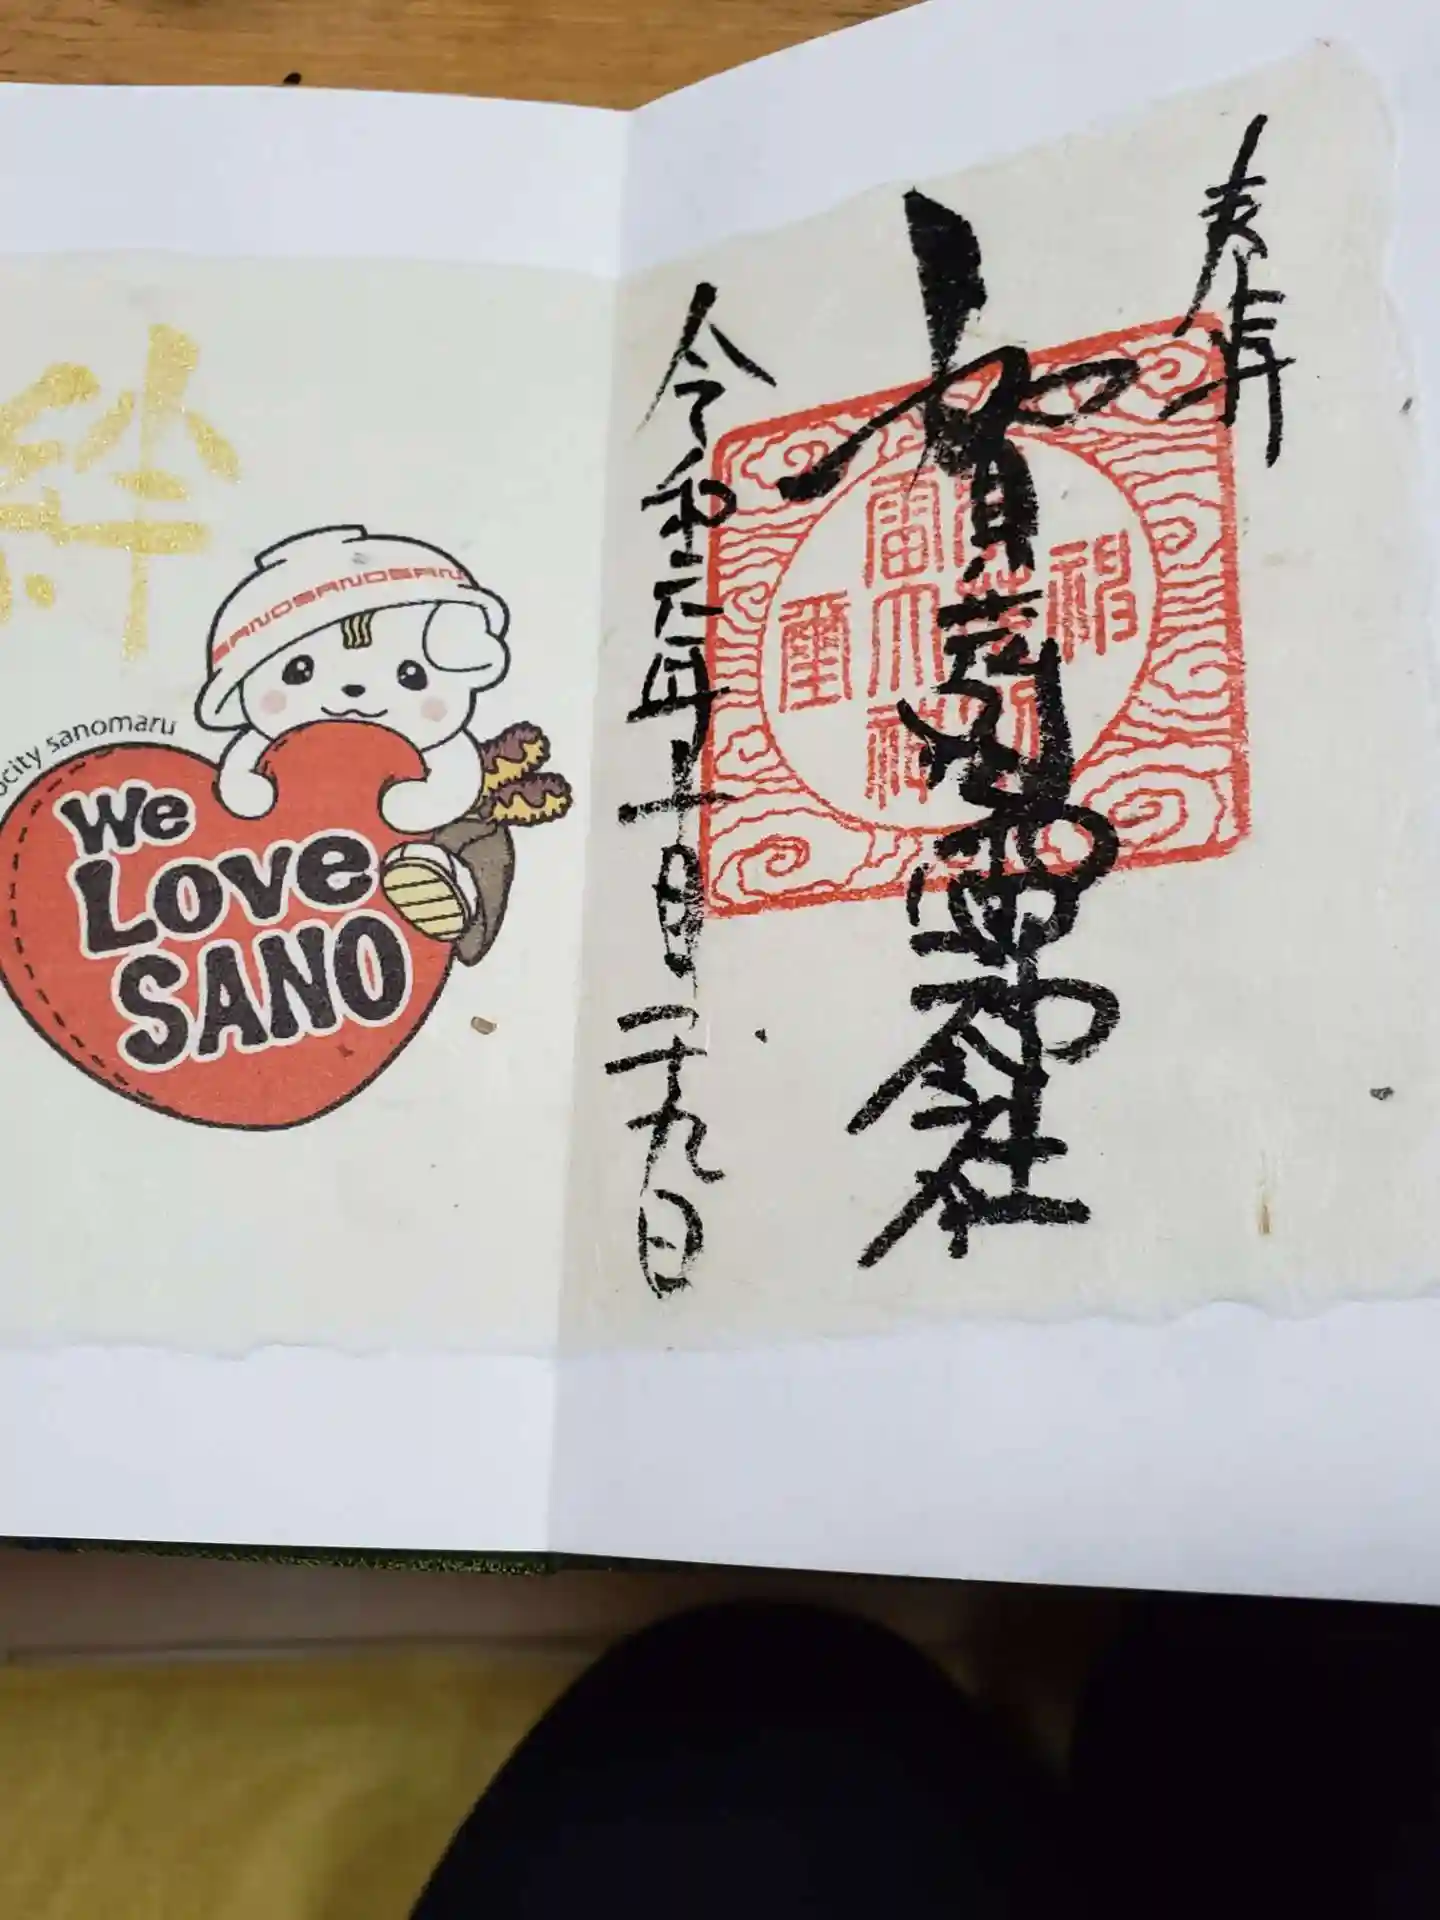 奉拝
賀茂別雷神社
令和六年十月二十九日
絆
SANOSANOSAN
city sanomaru
We
Love
SANO